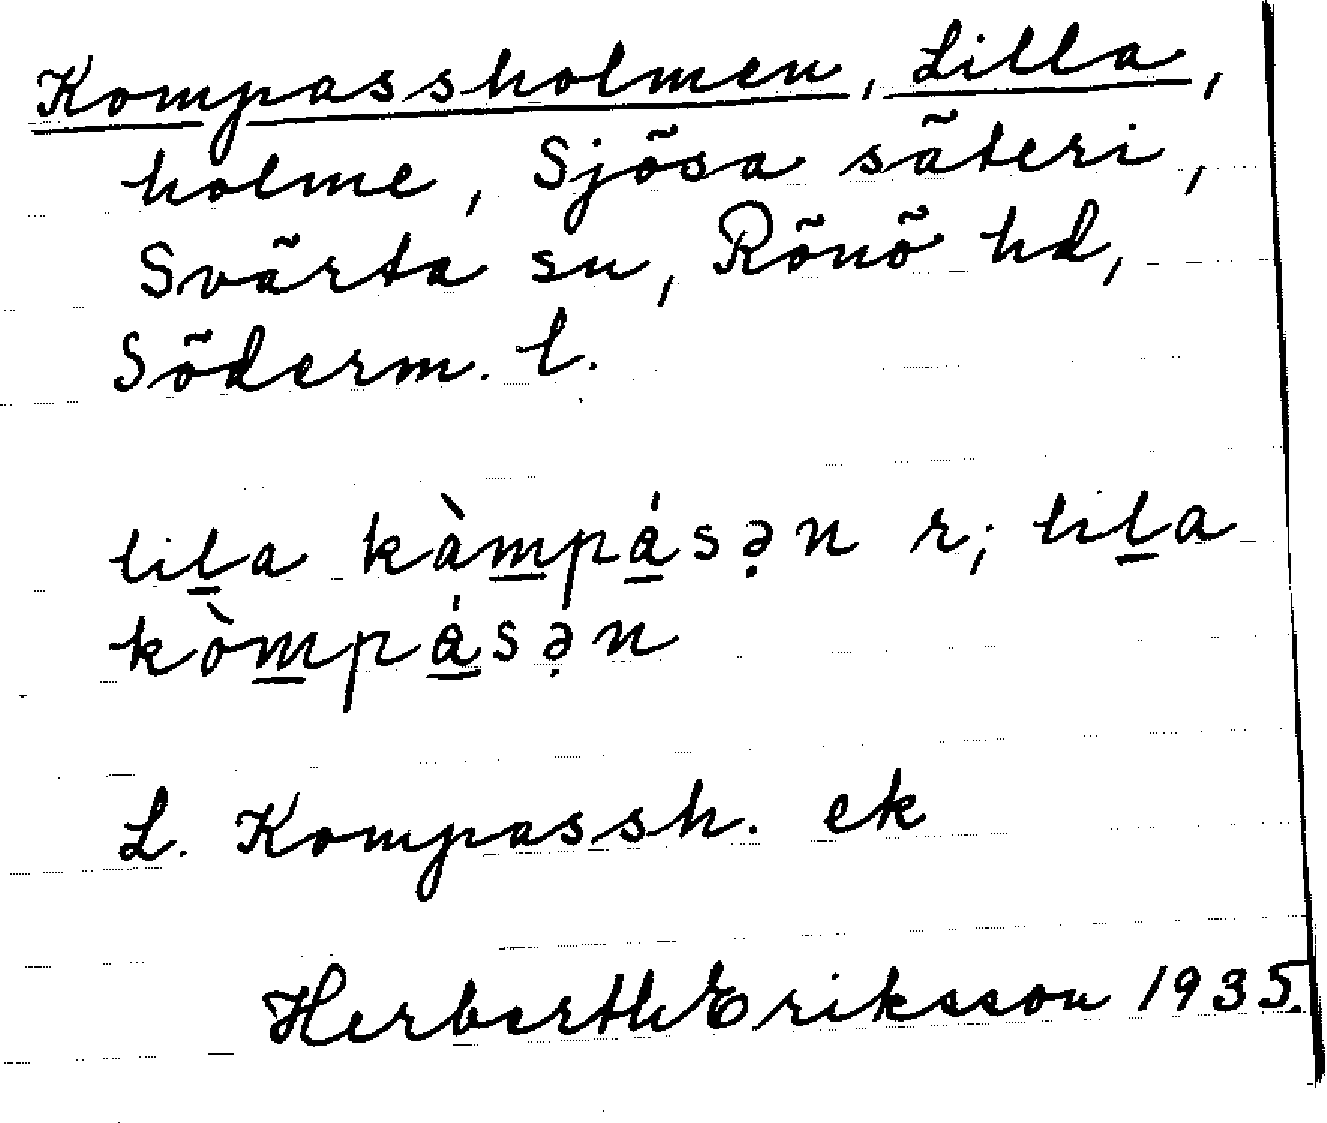 Kompassholmen, Lilla,
holme, Sjösa säteri,
Svärta sn, Rönö hd,
Söderm. l.
lil̲a kàm̲pá̲sə̣n r; lil̲a
kòm̲pá̲sə̣n
L. Kompassh. ek
Herberth Eriksson 1935.